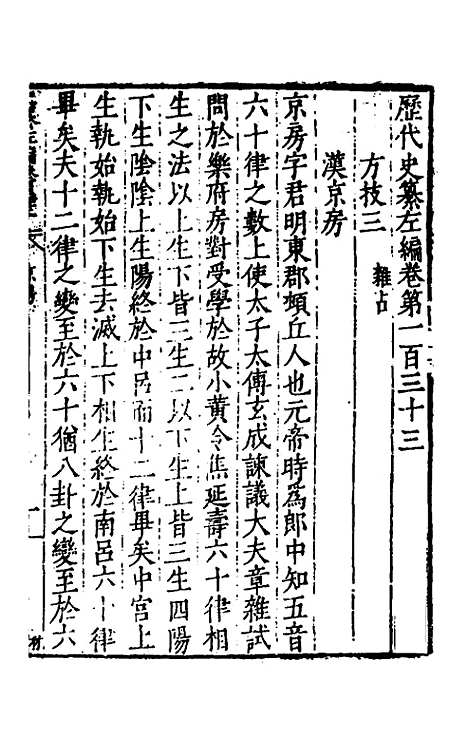 歷代史纂左編卷第一百三十三
方技三 雜占
漢京房
京房字君明東郡頓丘人也元帝時爲郎中知五音
六十律之數上使太子太傅玄成諫議大夫章雜試
問於樂府房對受學於故小黃令焦延壽六十律相
生之法以上生下皆三生二以下生上皆三生四陽
下生陰陰上生陽終於中呂而十二律畢矣中宮上
生執始執始下生去滅上下相生終於南呂六十律
畢矣夫十二律之變至於六十猶八卦之變至於六